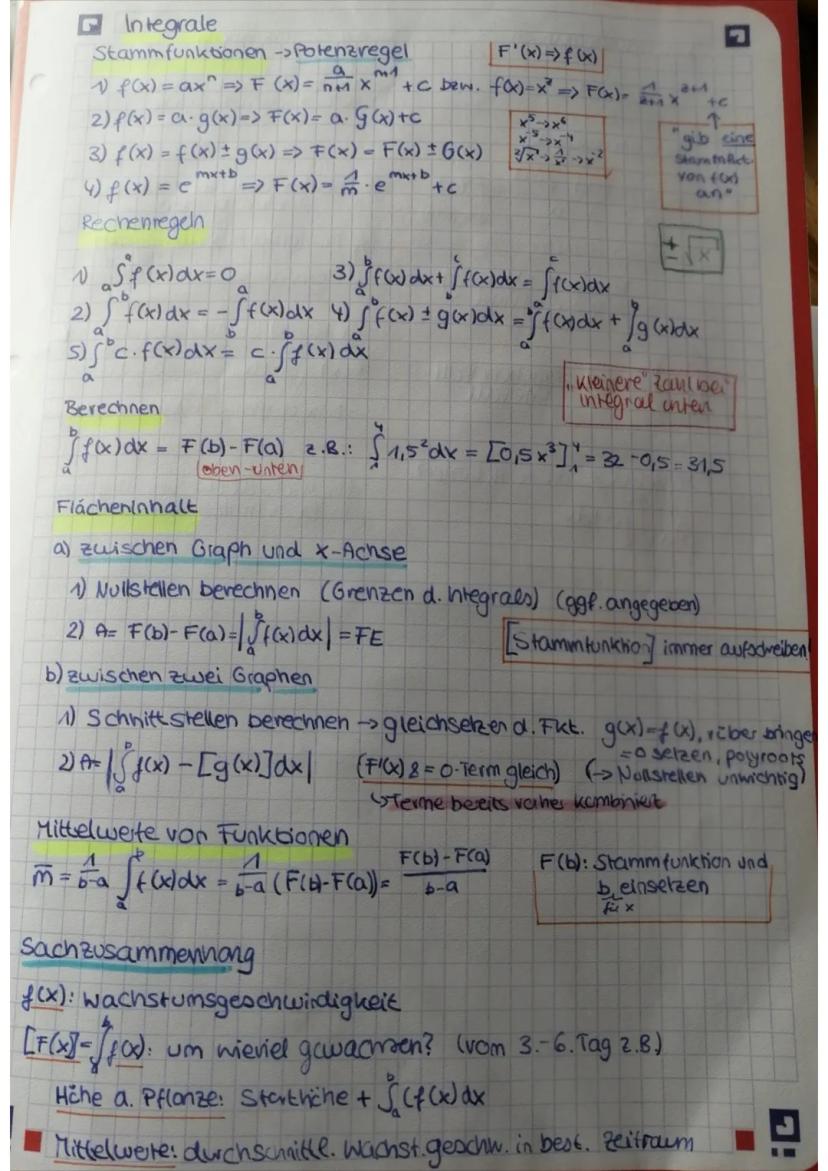 Integrale
Stammfunktionen → Potenzregel
F'(x) ⇒ f(x)
1) f(x) = axⁿ ⇒ F(x) = a/(n+1) x^(n+1) + c bzw. f(x) = x² ⇒ F(x) = 1/(2+1) x^(2+1) + c
2) f(x) = a · g(x) ⇒ F(x) = a · G(x) + c
x⁵ → x⁶
x⁻⁵ → x⁻⁴
"gib eine
Stammfkt.
von f(x)
an"
3) f(x) = f(x) ± g(x) ⇒ F(x) = F(x) ± G(x)
4) f(x) = e^(mx+b) ⇒ F(x) = 1/m · e^(mx+b) + c
Rechenregeln
± √x
1) ₐ∫ᵃ f(x) dx = 0
3) ₐ∫ᵇ f(x) dx + ᵦ∫ᶜ f(x) dx = ₐ∫ᶜ f(x) dx
2) ₐ∫ᵇ f(x) dx = - ᵦ∫ᵃ f(x) dx
4) ₐ∫ᵇ f(x) ± g(x) dx = ₐ∫ᵇ f(x) dx + ₐ∫ᵇ g(x) dx
5) ₐ∫ᵇ c · f(x) dx = c · ₐ∫ᵇ f(x) dx
"kleinere" Zahl bei
integral unten
Berechnen
ₐ∫ᵇ f(x) dx = F(b) - F(a) z.B.: ₁∫⁴ 1,5² dx = [0,5x³]₁⁴ = 32 - 0,5 = 31,5
oben - unten
Flächeninhalt
a) zwischen Graph und x-Achse
1) Nullstellen berechnen (Grenzen d. Integrals) (ggf. angegeben)
2) A = F(b) - F(a) = |ₐ∫ᵇ f(x) dx| = FE
[Stammfunktion] immer aufschreiben!
b) zwischen zwei Graphen
1) Schnittstellen berechnen → gleichsetzen d. Fkt. g(x) = f(x), rüber bringen
= 0 setzen, polyroots
2) A = |ₐ∫ᵇ f(x) - [g(x)] dx| (F'(x) & = 0-Term gleich) (→ Nullstellen unwichtig)
↳ Terme bereits vorher kombiniert
Mittelwerte von Funktionen
m̅ = 1/(b-a) ₐ∫ᵇ f(x) dx = 1/(b-a) (F(b) - F(a)) = (F(b) - F(a))/(b-a)
F(b): Stammfunktion und
b einsetzen
für x
Sachzusammenhang
f(x): Wachstumsgeschwindigkeit
[F(x)] = ₐ∫ᵇ f(x): um wieviel gewachsen? (vom 3.-6. Tag z.B.)
Höhe a. Pflanze: Starthöhe + ₐ∫ᵇ (f(x) dx
Mittelwerte: durchschnittl. Wachst.geschw. in best. Zeitraum